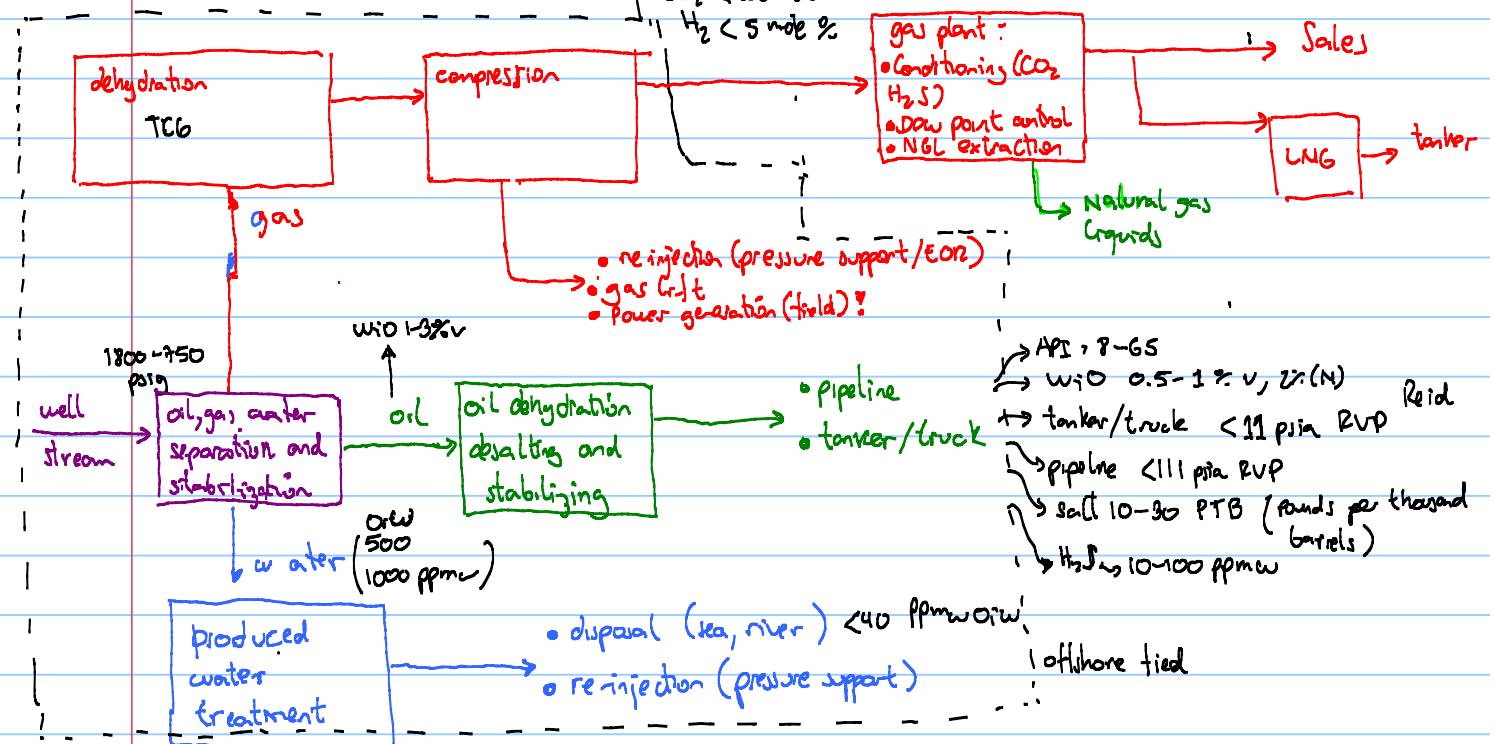 H₂ < 5 mole %
dehydration
TEG
compression
gas plant :
• Conditioning (CO₂
H₂S)
• Dow point control
• NGL extraction
Sales
LNG
tanker
Natural gas
liquids
gas
• re-injection (pressure support/EOR)
• gas lift
• Power generation (field) !
WiO 1-3% v
1800-750
psig
well
stream
oil, gas, water
separation and
stabilization
oil
oil dehydration
desalting and
stabilizing
• pipeline
• tanker/truck
API, 8-65
WiO 0.5-1% v, 2% (N)
Reid
tanker/truck <11 psia RVP
pipeline <111 psia RVP
salt 10-30 PTB (pounds per thousand
barrels)
H₂S 10-100 ppmw
water
OiW
500
1000 ppmw
produced
water
treatment
• disposal (sea, river) <40 ppmw oiw
• re-injection (pressure support)
offshore field